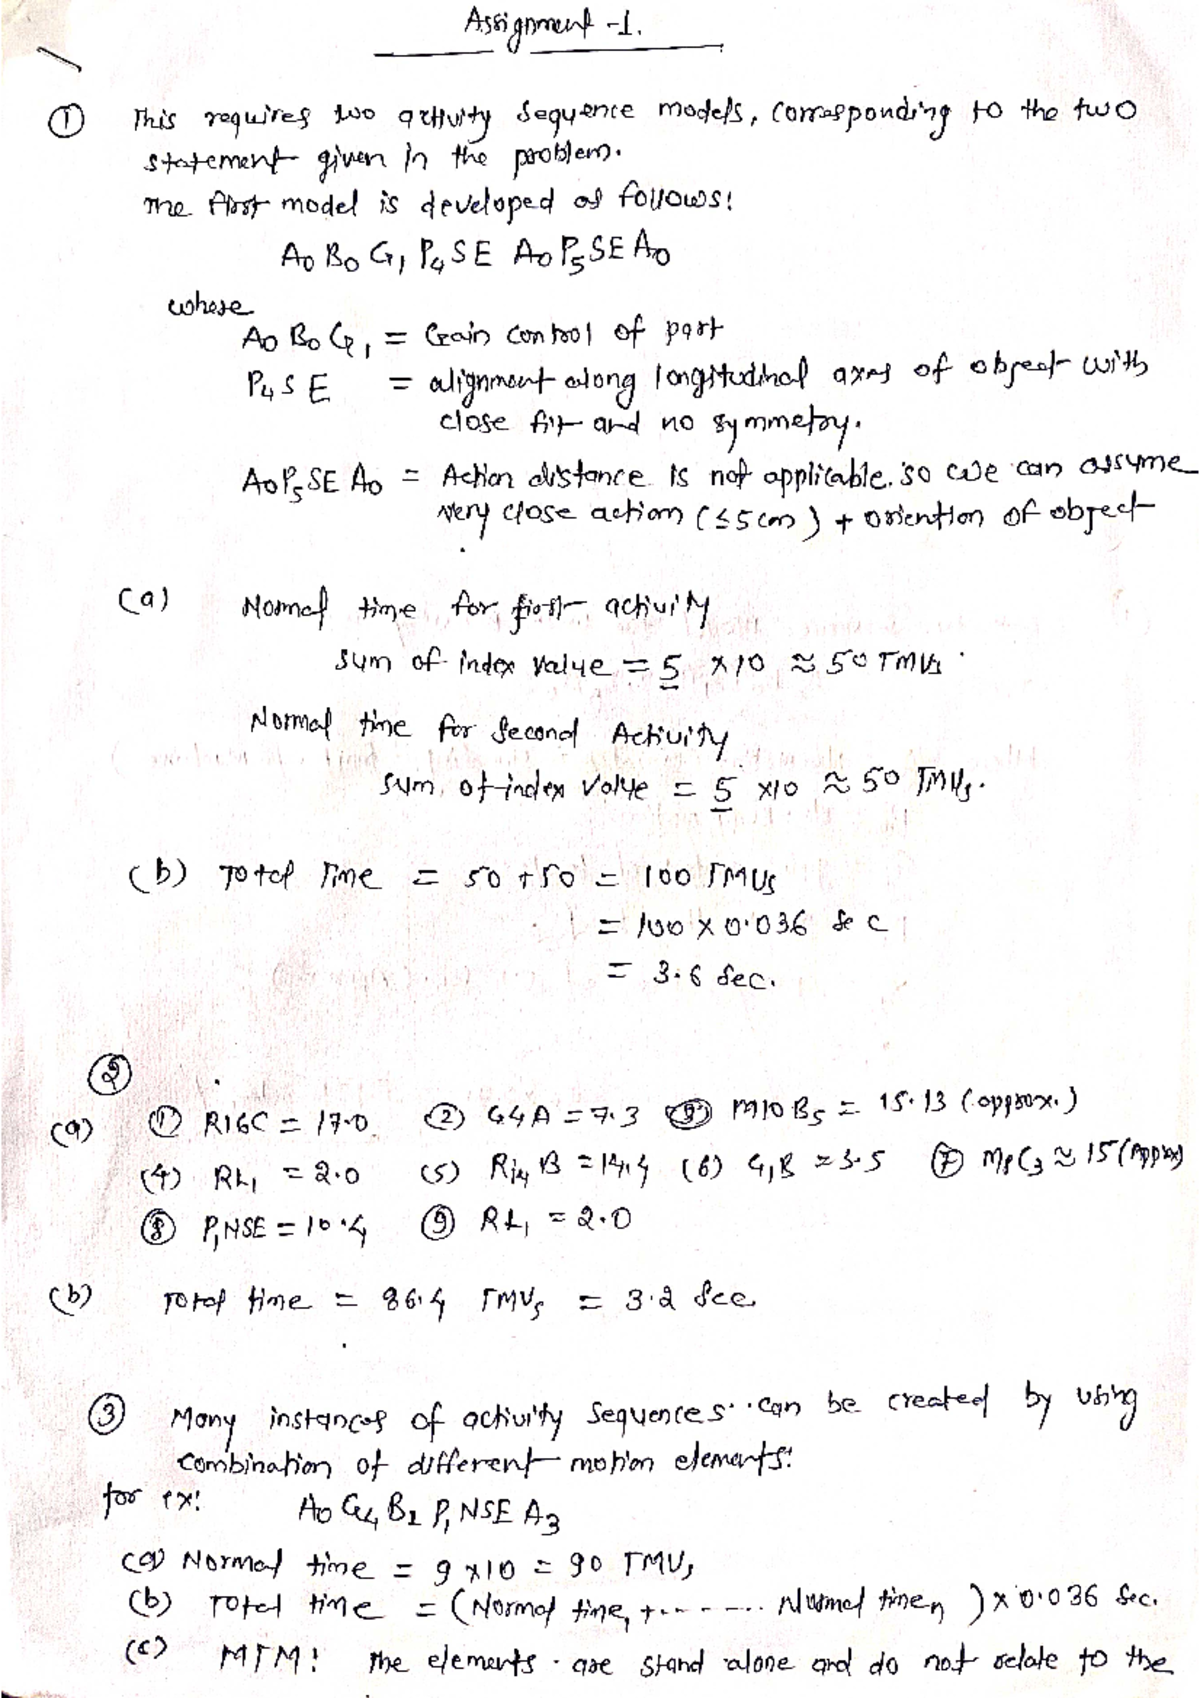 Assignment -1.
① This requires two activity sequence models, corresponding to the two
statement given in the problem.
The first model is developed as follows:
A0 B0 G1 P4 SE A0 P5 SE A0
where
A0 B0 G1 = Gain control of part
P4 S E = alignment along longitudinal axes of object with
close fit and no symmetry.
A0 P5 SE A0 = Action distance is not applicable. so we can assume
very close action (≤5cm) + oriention of object
(a) Normal time for first activity
sum of index value = 5 x10 ≈ 50 TMUs
Normal time for second Activity
sum of index value = 5 x10 ≈ 50 TMUs.
(b) Total Time = 50 + 50 = 100 TMUs
= 100 x 0.036 sec
= 3.6 sec.
②
(a) ① R16C = 17.0 ② G4A = 7.3 ③ M10B5 = 15.13 (approx.)
(4) RL1 = 2.0 (5) R14 B = 14.4 (6) G1B = 3.5 ⑦ M8C3 ≈ 15 (Approx)
⑧ P1NSE = 10.4 ⑨ RL1 = 2.0
(b) Total time = 86.4 TMUs = 3.2 sec.
③ Many instances of activity sequences can be created by using
combination of different motion elements:
for ex: A0 G4 B1 P1 NSE A3
(a) Normal time = 9 x10 = 90 TMUs
(b) Total time = (Normal time1 +-------- Normal timen) x 0.036 sec.
(c) MTM: The elements are stand alone and do not relate to the